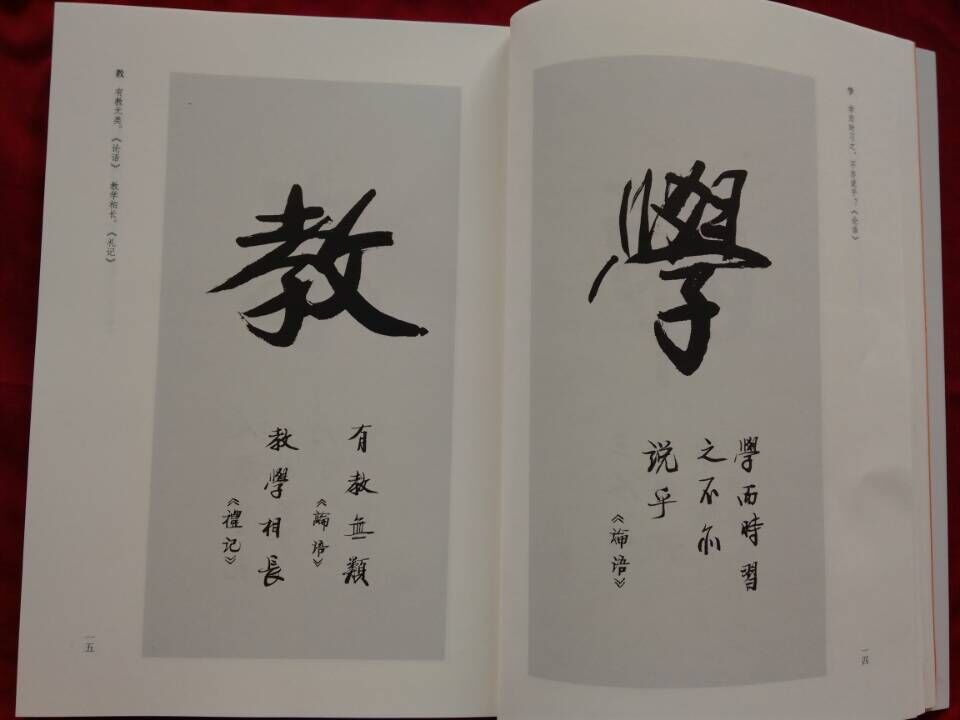 学 学而时习之，不亦说乎？《论语》
學
學而時習
之不亦
説乎
《論語》
一四
教 有教无类。《论语》 教学相长。《礼记》
教
有教無類
《論語》
教學相長
《禮记》
一五